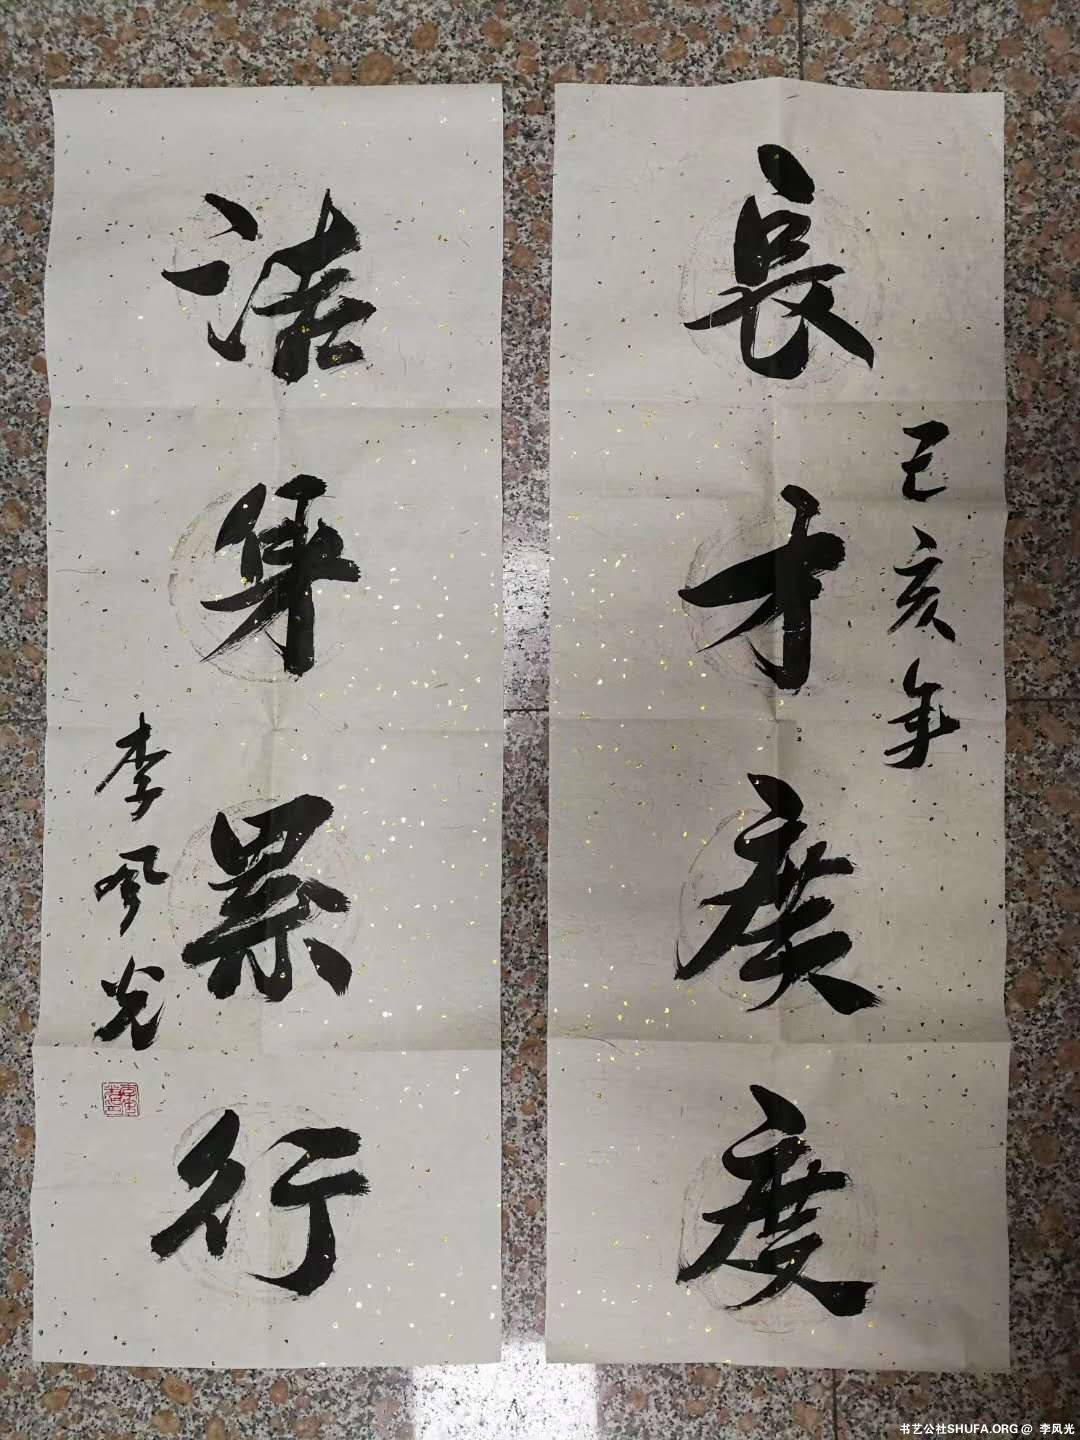 己亥年
長才廣度
洁身累行
李风光
书艺公社SHUFA.ORG @ 李风光